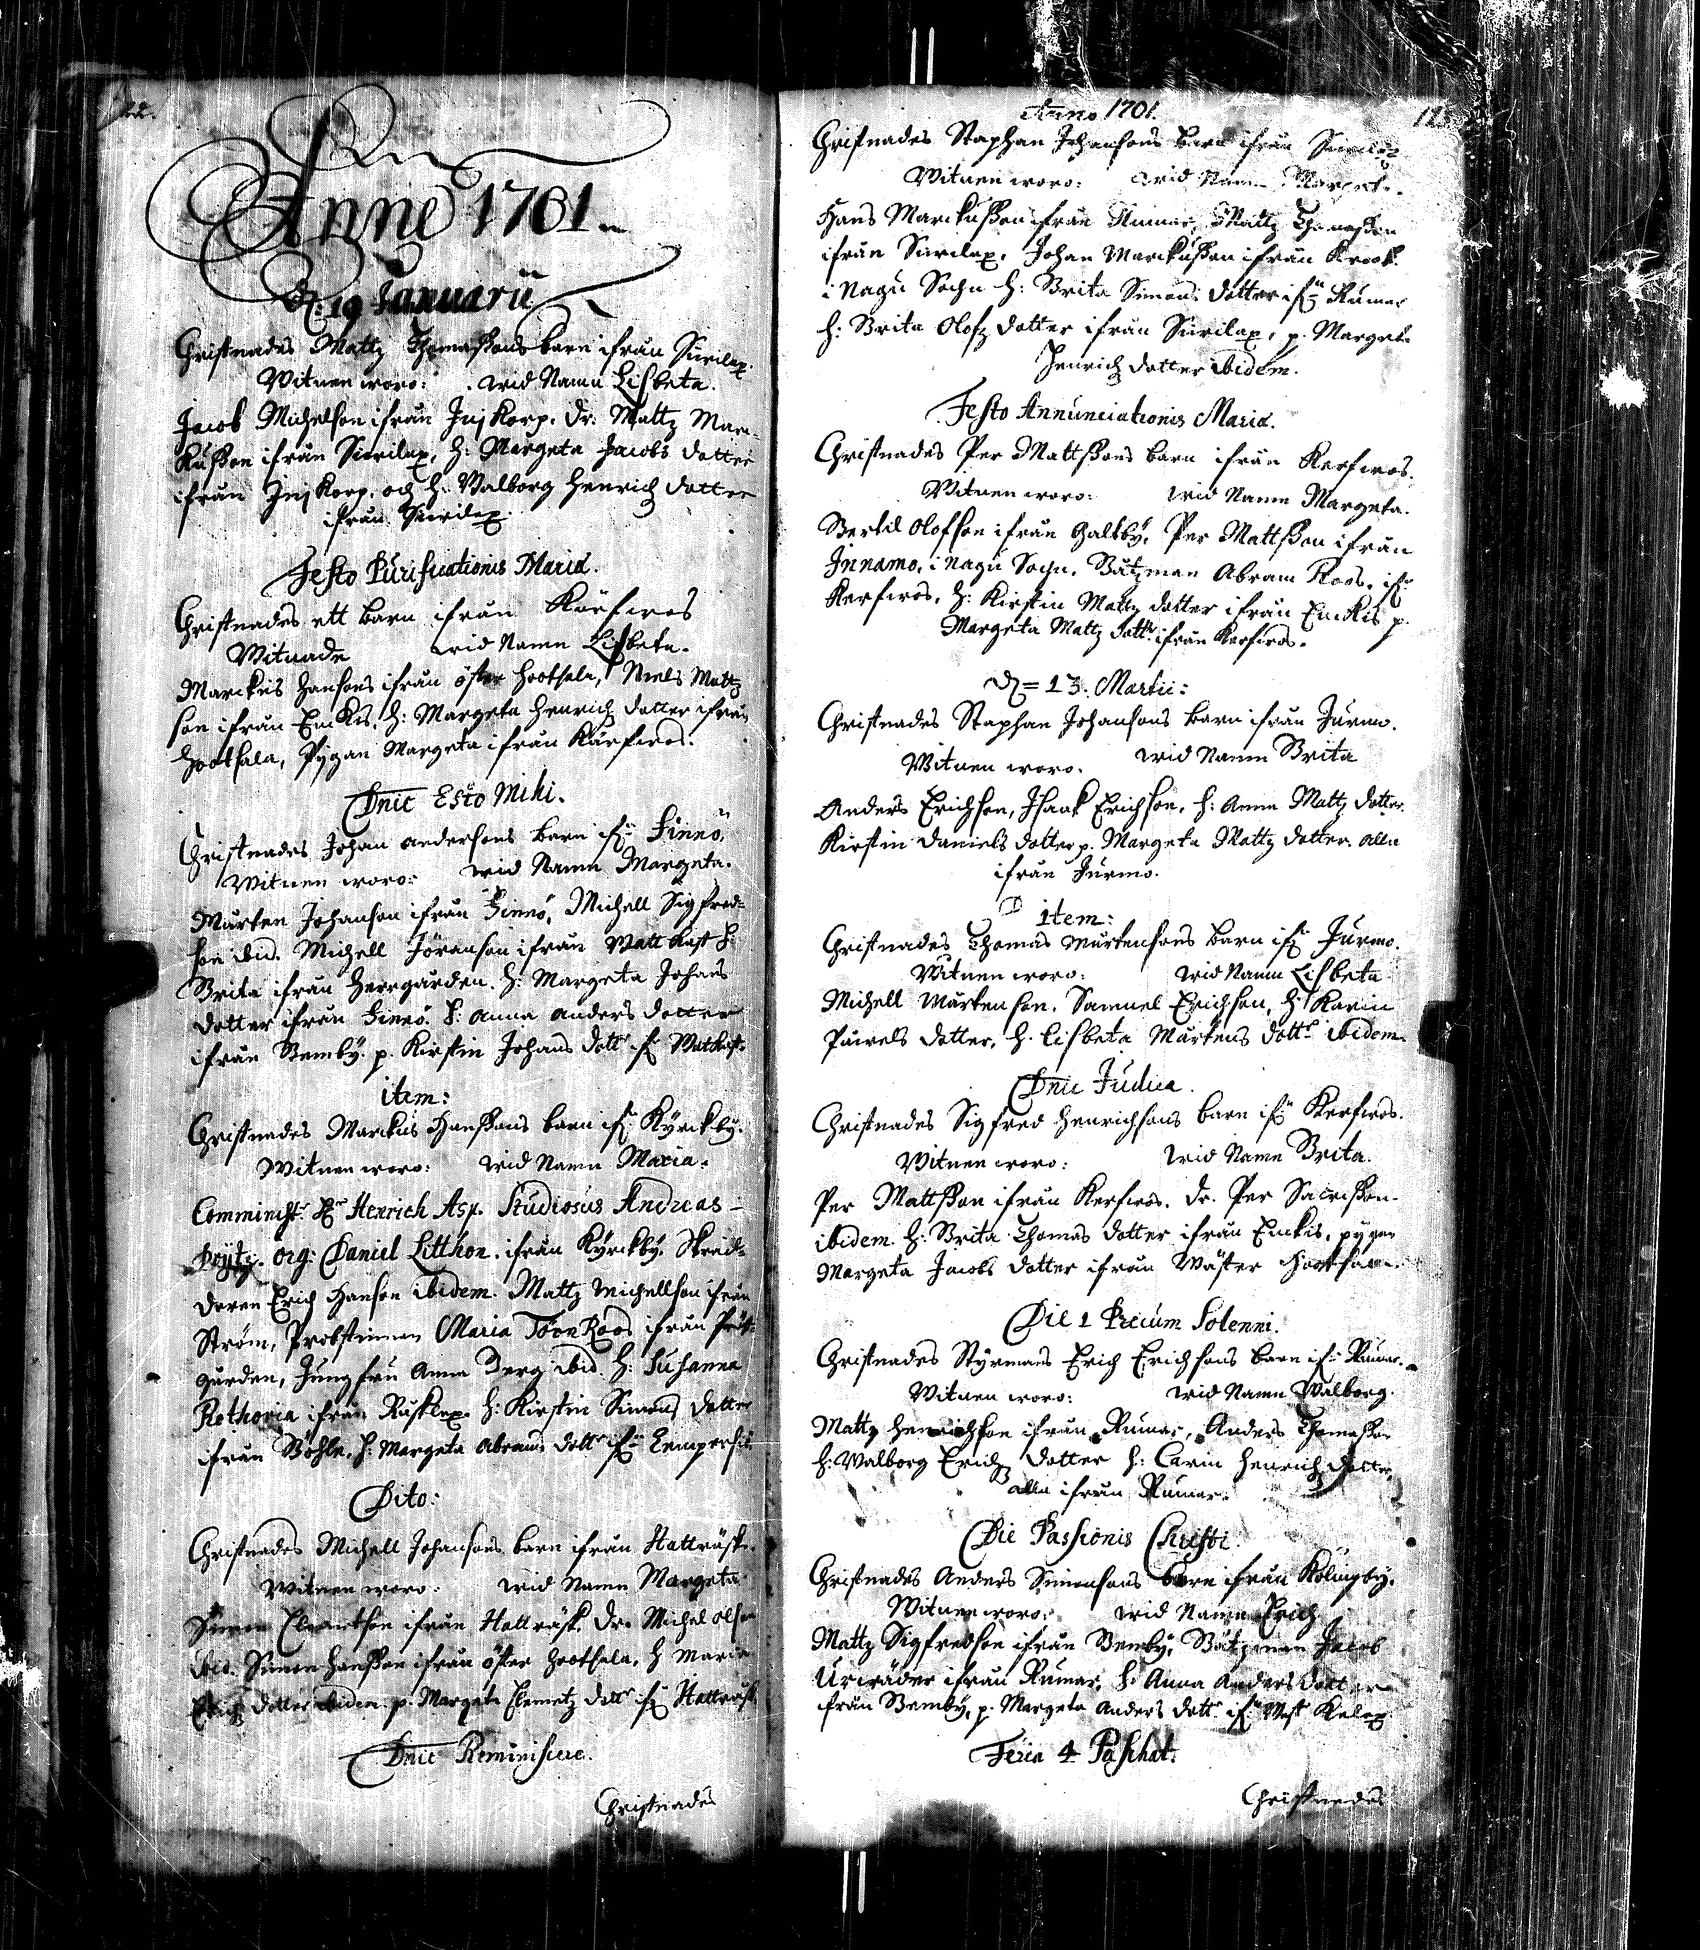 Anno 1701.
D. 19 Januarii
Christnades Mattz Thomassons barn ifrån Surilax.
Witnen woro: wid Namn Lisbeta.
Jacob Michelson ifrån Injkorp. Dr. Mattz Marc-
kusson ifrån Surilax, H: Margeta Jacobs dotter
ifrån Injkorp. och H: Walborg Henrich dotter
ifrån Surilax.
Festo Purificationis Mariæ.
Christnades ett barn ifrån Kärfwos
Witnade wid Namn Lisbeta.
Marckus Hansons ifrån öster Hootsala, Niels Mattz
son ifrån Enckis, H: Margeta Henrich dotter ifrån
Hootsala, Pÿgan Margeta ifrån Kärfwos.
Dnic Esto Mihi.
Christnades Johan andersons barn ifr. Finnö,
Witnen woro: wid Namn Margeta.
Mårten Johanson ifrån Finnö, Michell Sigfred-
son ibid. Michell Jöranson ifrån Wattkast H:
Brita ifrån Herrgården. H: Margeta Johans
dotter ifrån Finnö. H: Anna anders dotter
ifrån Bembÿ. p. Kirstin Johans dottr ifr. Watkast.
item:
Christnades Marckus Hanssons barn ifr. Kÿrckbÿ.
Witnen woro: wid Namn Maria.
Comminist. Hr Henrich Asp. Studiosus Andreas
Prÿtz. org: Daniel Litthon. ifrån Kÿrckbÿ. Skred-
daren Erich Hanson ibidem. Mattz Michellson ifrån
Ström, Probstinnan Maria TörnRoos ifrån Präst-
gården, Jungfru Anna Berg ibid. H: Susanna
Rethoria ifrån Rusklax. H: Kirstin Simons dotter
ifrån Böhle, H: Margeta Abrams dottr ifr. Lempersöö
Dito:
Christnades Michell Johansons barn ifrån Hatträsk.
Witnen woro: wid Namn Margeta
Simon Clemetson ifrån Hatträsk. Dr. Michel olson
ibid. Simon Hansson ifrån öster Hootsala, H Maria
Erich dotter ibidem. p. Margeta Clemetz dottr ifr. Hatträsk
Dnic Reminiscere.
Christnades
Anno 1701.
Christnades Staphan Johansons barn ifrån Surilax
Witnen woro: wid Namn Margeta.
Hans Marckusson ifrån Rumar, Mattz Thomasson
ifrån Surilax, Johan Marckusson ifrån Krook.
i Nagu Sochn H: Brita Simons dotter ifr. Rumar
H: Brita Olofz dotter ifrån Surilax, p. Margeta
Henrich dotter ibidem.
Festo Annunciationis Mariæ.
Christnades Per Mattssons barn ifrån Kerfwos.
Witnen woro: wid Namn Margeta.
Bertil Olofson ifrån Galtbÿ, Per Mattsson ifrån
Innamo, i Nagu Sochn. Båtzman Abram Roos. ifr.
Kerfwos, H: Kirstin Mattz dotter ifrån Enckis p.
Margeta Mattz dottr ifrån Kerfwos.
D = 13. Martii:
Christnades Staphan Johansons barn ifrån Jurmo.
Witnen woro. wid Namn Brita
Anders Erichson, Isaak Erichson, H: Anna Mattz dotter.
Kirstin Daniels dotter p. Margeta Mattz dotter. alla
ifrån Jurmo.
item:
Christnades Thomas Mårtensons barn ifr. Jurmo.
Witnen woro: wid Namn Lisbeta
Michell Mårtenson. Samuel Erichson, H: Karin
Påwels dotter, H. Lisbeta Mårtens dottr ibidem.
Dnic Judica.
Christnades Sigfred Henrichsons barn ifr. Kerfwos.
Witnen woro: wid Namn Brita.
Per Mattsson ifrån Kerfwos. Dr. Per Sacrisson
ibidem. H: Brita Thomas dotter ifrån Enckis, pÿgan
Margeta Jacobs dotter ifrån Wäster Hootsala.
Die 1 Precum Solenni.
Christnades Stÿrmans Erich Erichsons barn ifr. Rumar.
Witnen woro: wid Namn Walborg.
Mattz Henrichson ifrån Rumar, Anders Thomasson
H: Walborg Erichz dotter H: Carin Henrich dotter,
alla ifrån Rumar.
Die Passionis Christi.
Christnades Anders Simonsons barn ifrån Kölingbÿ.
Witnen woro: wid Namn Erich.
Mattz Sigfredson ifrån Bembÿ, Båtzman Jacob
Urwäder ifrån Rumar, H: Anna Anders dotter
från Bembÿ, p. Margeta Anders dottr ifr. Wäst Kelax
Feria 4 Paschat.
Christnades